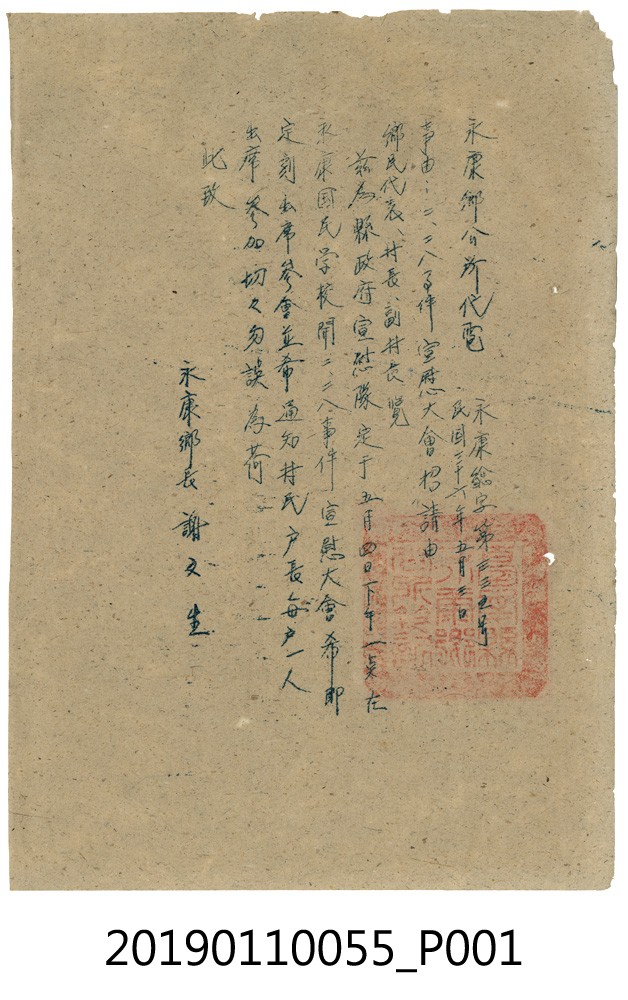 永康鄉公所代電
永康總字第三三五号
民国三十六年五月三日
事由：二、二八事件宣慰大會招請由
鄉民代表、村長、副村長覽
茲為縣政府宣慰隊定于五月四日下午一点在
永康国民学校開二、二八事件宣慰大會希即
定刻出席參會並希通知村民戶長每戶一人
出席參加切々勿誤為荷
此致
永康鄉長謝文生
20190110055_P001